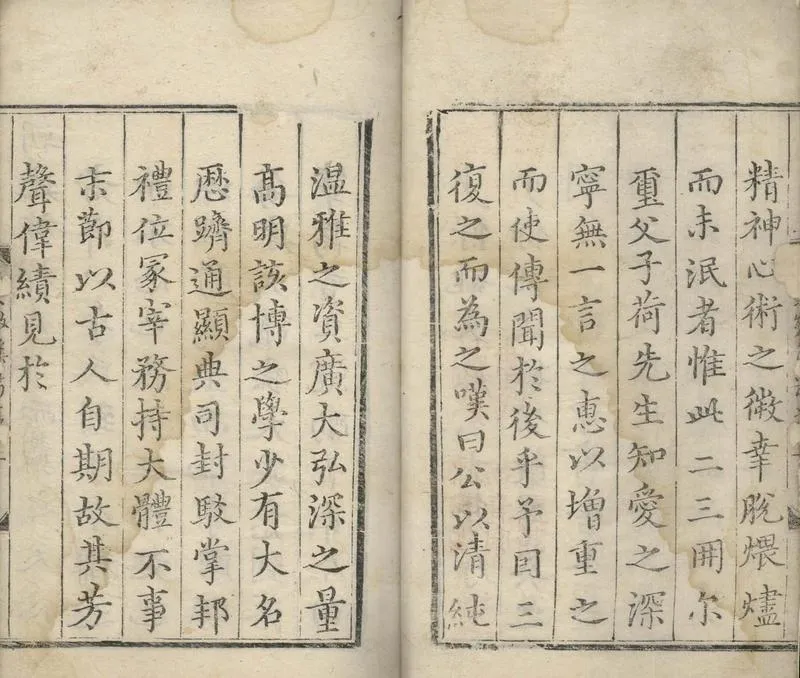 精神心術之微幸脫煨燼
而未泯者惟此二三冊尔
重父子荷先生知愛之深
寧無一言之惠以增重之
而使傳聞於後乎予因三
復之而為之嘆曰公以清純
温雅之資廣大弘深之量
髙明該博之學少有大名
歴躋通顯典司封駁掌邦
禮位冢宰務持大體不事
末節以古人自期故其芳
聲偉績見於